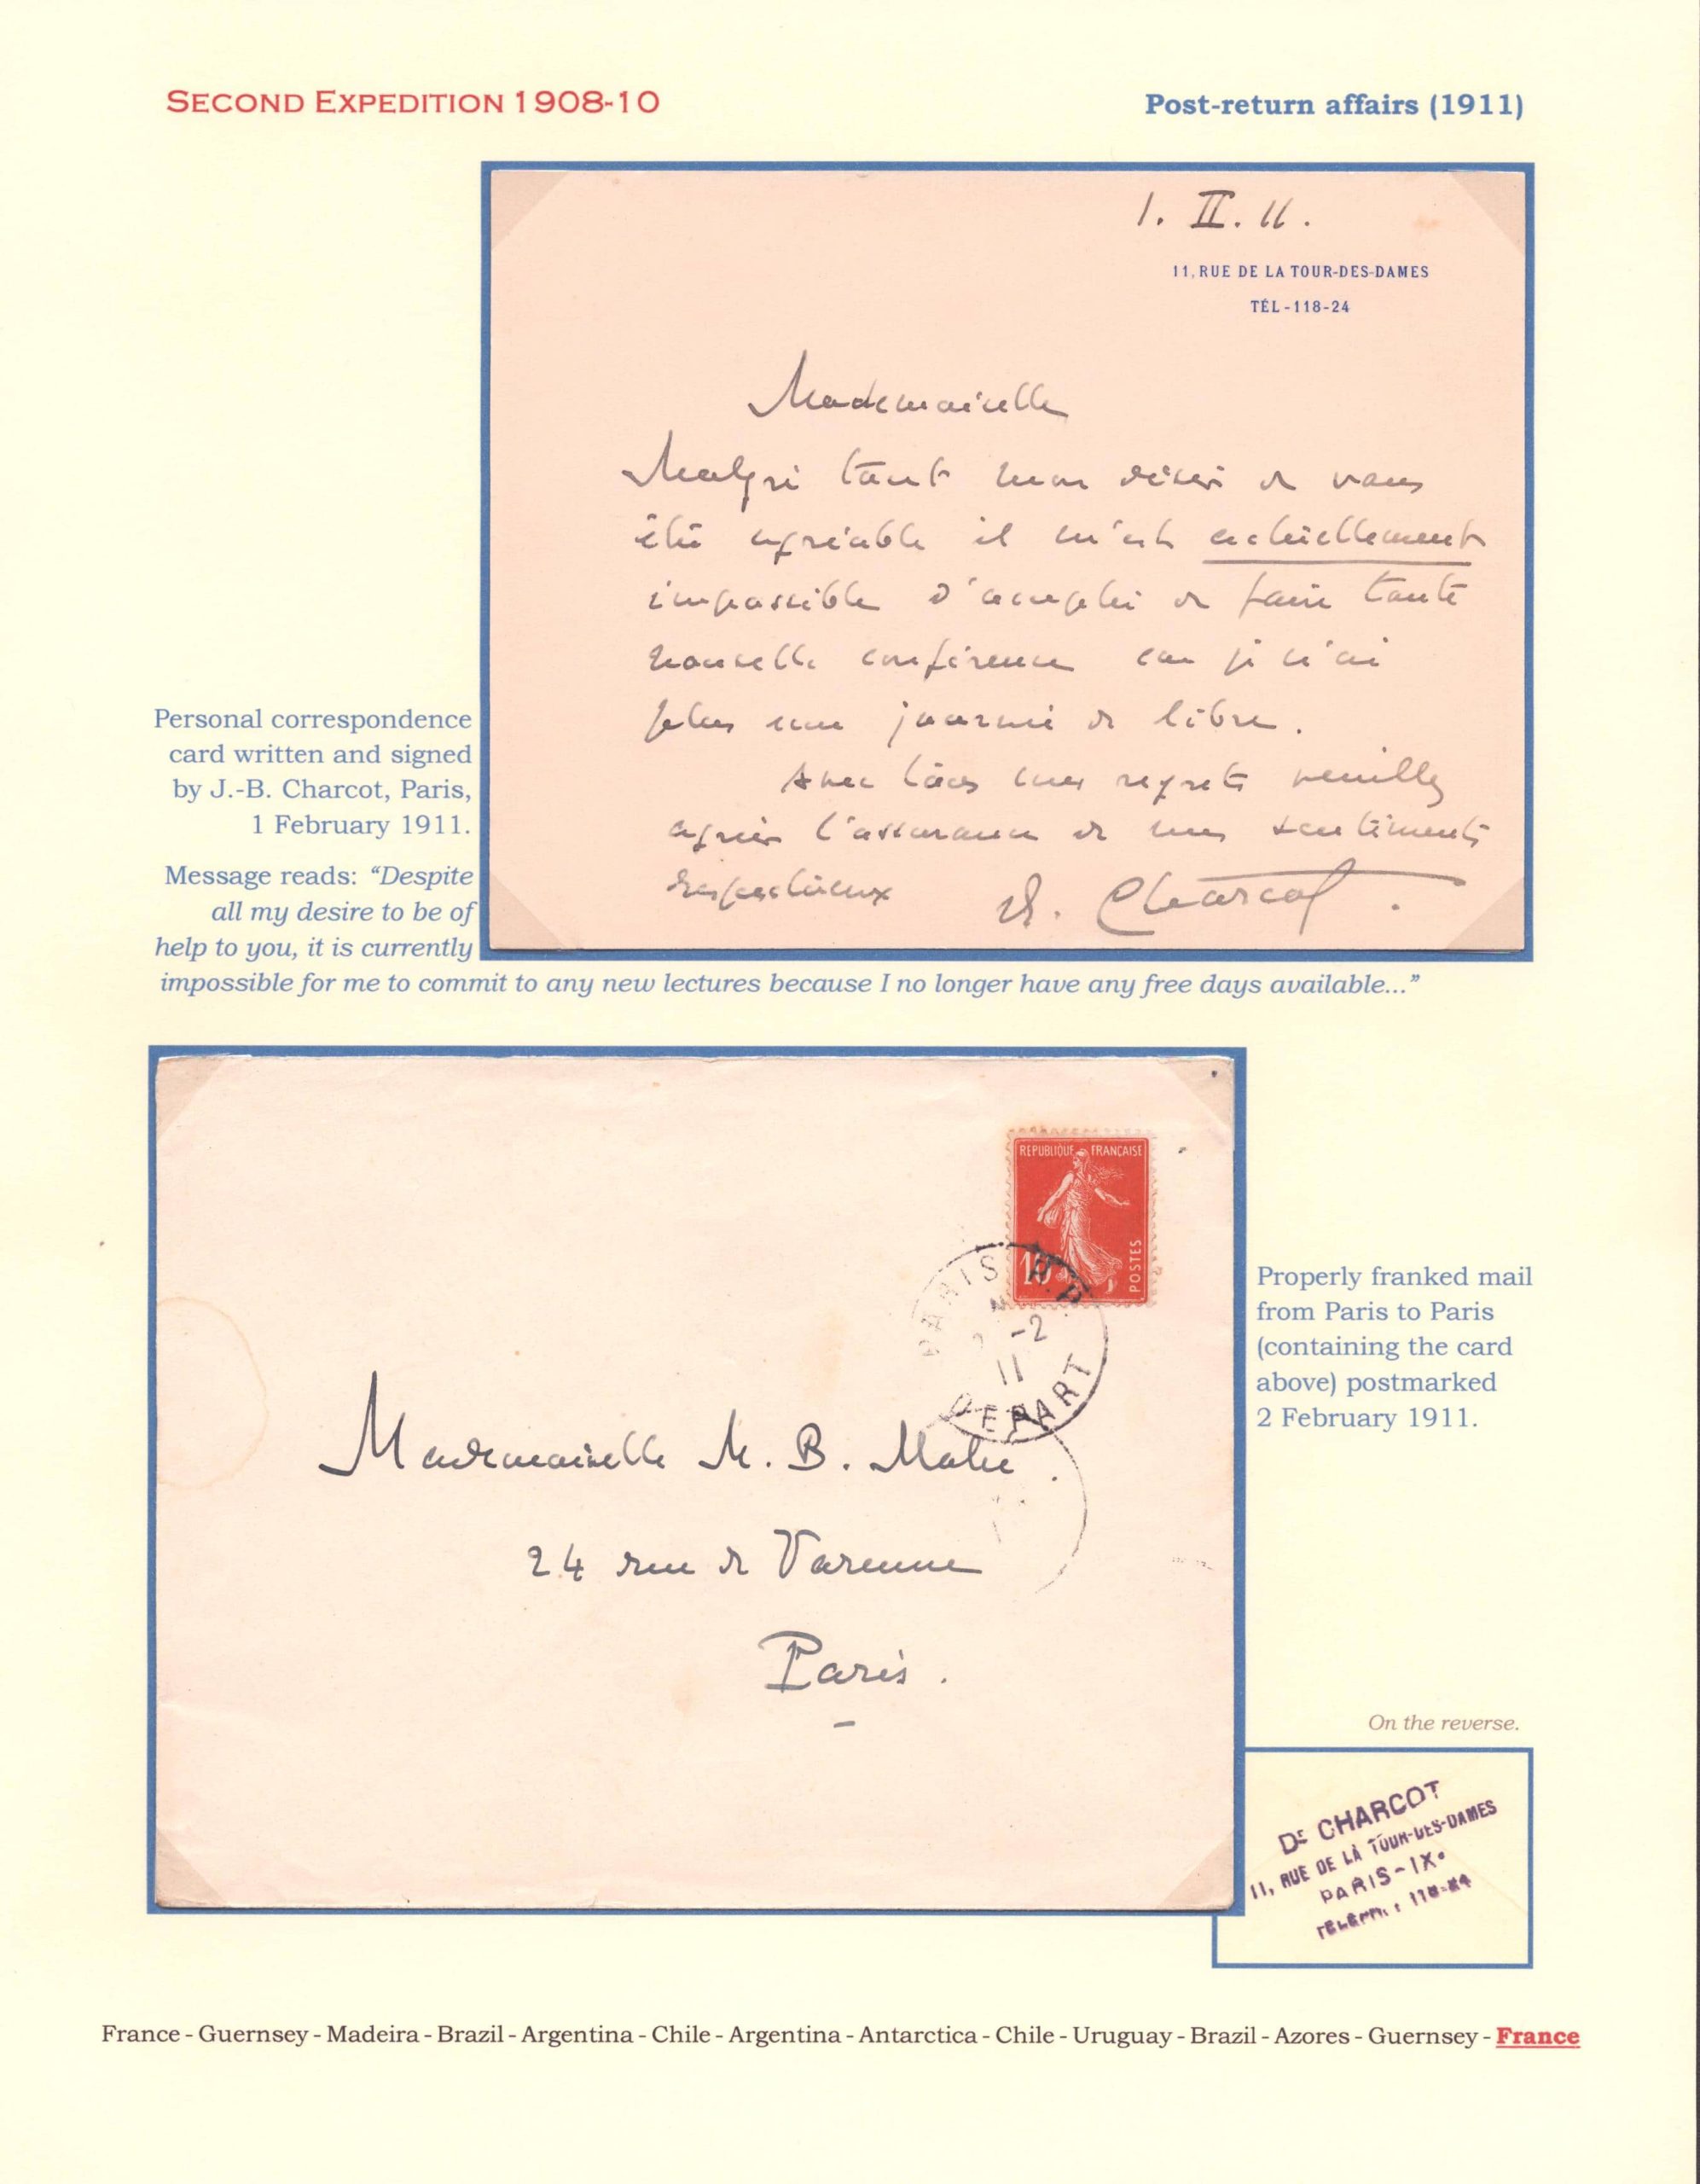 SECOND EXPEDITION 1908-10
Post-return affairs (1911)
1. II. 11.
11, RUE DE LA TOUR-DES-DAMES
TÉL-118-24
Mademoiselle
Malgré tout mon désir de vous
être agréable il m'est actuellement
impossible d'accepter de faire toute
nouvelle conférence car je n'ai
plus une journée de libre.
Avec tous mes regrets veuillez
agréer l'assurance de mes sentiments
respectueux
Charcot.
Personal correspondence
card written and signed
by J.-B. Charcot, Paris,
1 February 1911.
Message reads: “Despite
all my desire to be of
help to you, it is currently
impossible for me to commit to any new lectures because I no longer have any free days available...”
REPUBLIQUE FRANÇAISE
10
POSTES
PARIS R.P.
2 -2
11
DEPART
Mademoiselle M. B.
24 rue de Varenne
Paris.
Properly franked mail
from Paris to Paris
(containing the card
above) postmarked
2 February 1911.
On the reverse.
Dr CHARCOT
11, RUE DE LA TOUR-DES-DAMES
PARIS-IXe
TELEPH. : 118-24
France - Guernsey - Madeira - Brazil - Argentina - Chile - Argentina - Antarctica - Chile - Uruguay - Brazil - Azores - Guernsey - France